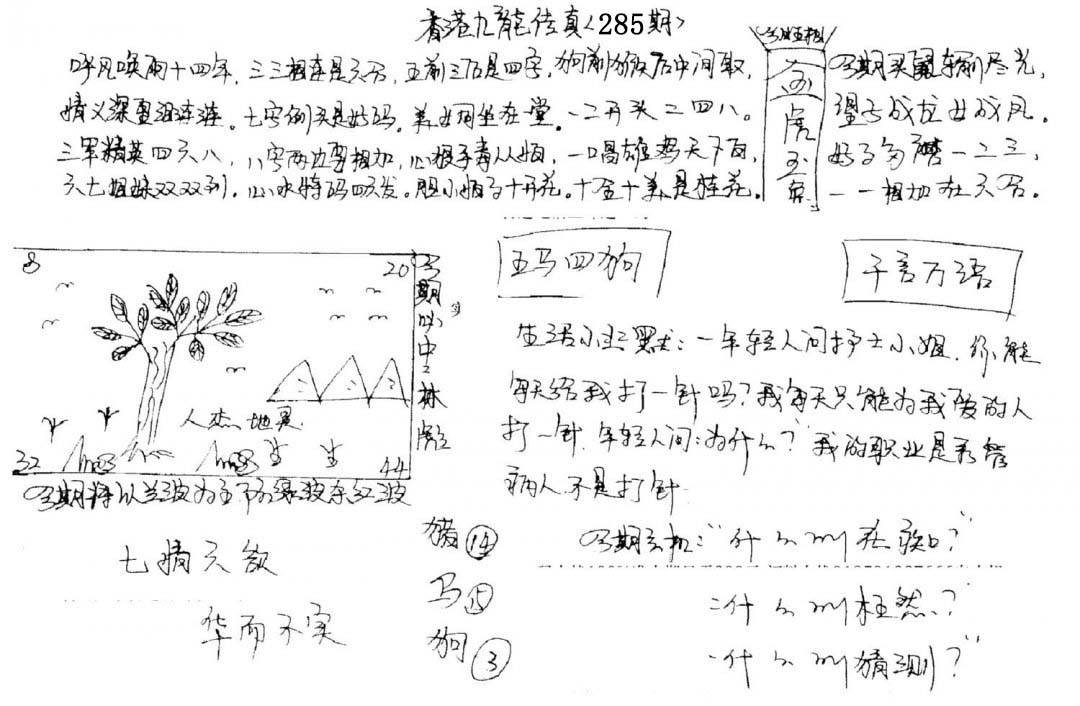 香港九龙传真〈285期〉
呼风唤雨十四年，三三相连是六合，五前三后是四字，狗前猴后中间取，
情义深重泪涟涟。七字例头是好码。美女同坐在堂。一二开头二四八。
三军精英四六八，八字两边要相加，心狠手毒从娘，一唱雄鸡天下白，
六七姐妹双双到，心水特码四六发。胆小娘子十开花。十全十美是桂花。
今期买鼠车前尽光，
望子成龙女成凤。
好事多磨一二三，
一一相加在六合。
虎
玉
兔
8
20
人杰地灵
32
44
今期必中
今期特以兰波为主
七情六欲
华而不实
猪 14
马 15
狗 3
五马四狗
千言万语
生活小幽默：一年轻人问护士小姐，你能
每天给我打一针吗？我每天只能为我爱的人
打一针，年轻人问：为什么？我的职业是看管
病人，不是打针
今期玄机：“什么叫
二什么叫枉然？”
一什么叫猜测？”